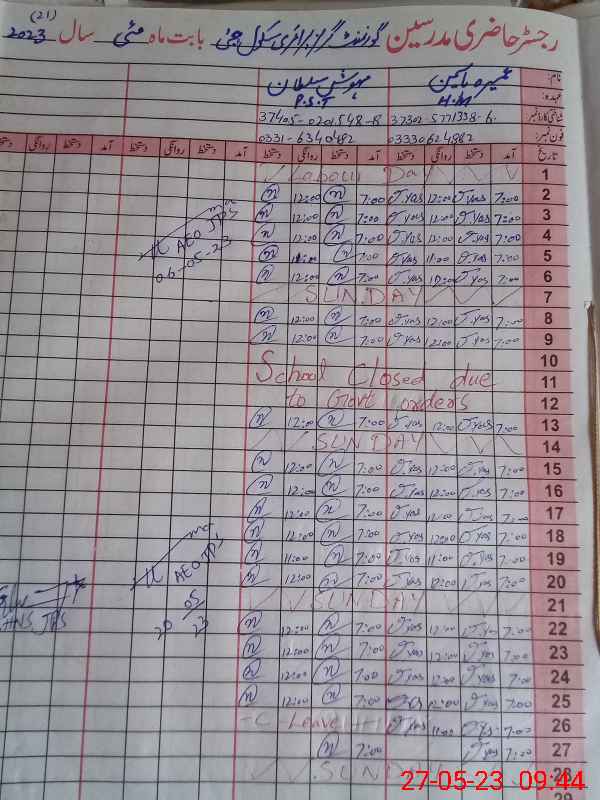 (21)
رجسٹر حاضری مدرسین گورنمنٹ گرلز پرائمری سکول بابت ماہ مئی سال 2023
نام: مہوش سلطان
عہدہ: H.M P.S.T
شناختی کارڈ نمبر 37302-5771338-6 37405-0201548-8
فون نمبر: 03330624862 0331-6340482
تاریخ آمد دستخط روانگی دستخط آمد دستخط روانگی دستخط آمد دستخط روانگی دستخط آمد دستخط روانگی دستخط
1 Labour Day
2 7:00 12:00 7:00 12:00
3 7:00 12:00 7:00 12:00
4 7:00 12:00 7:00 12:00
5 7:00 11:00 7:00 11:00
6 7:00 12:00 7:00 12:00
AEO JPS
06-05-23
7 SUNDAY
8 7:00 12:00 7:00 12:00
9 7:00 12:00 7:00 12:00
10
11 School Closed due
12 to Govt orders
13 7:00 12:00 7:00 12:00
14 SUNDAY
15 7:00 12:00 7:00 12:00
16 7:00 12:00 7:00 12:00
17 7:00 12:00 7:00 12:00
18 7:00 12:00 7:00 12:00
19 7:00 11:00 7:00 11:00
20 7:00 12:00 7:00 12:00
AEO JPS
20 05 23
21 SUNDAY
22 7:00 12:00 7:00 12:00
23 7:00 12:00 7:00 12:00
24 7:00 12:00 7:00 12:00
25 7:00 12:00 7:00 12:00
26 7:00 11:00 C-Leave
27 7:00 7:00
28 SUNDAY
29
27-05-23 09:44